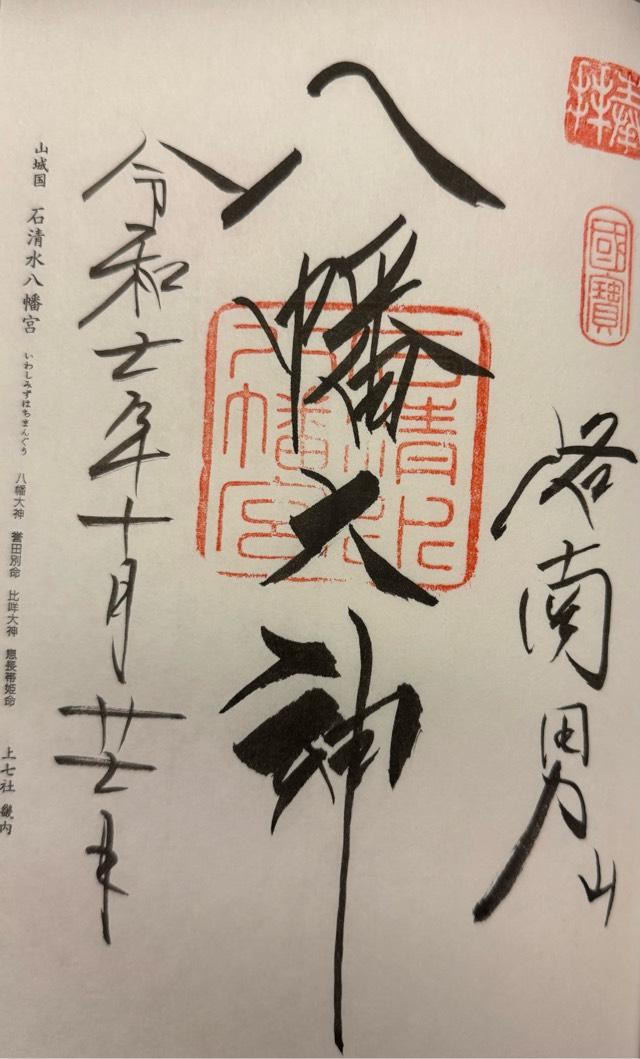 奉拝
國寶
洛南男山
八幡大神
石清水八幡宮
令和五年十月廿五日
山城国 石清水八幡宮 いわしみずはちまんぐう 八幡大神 誉田別命 比咩大神 息長帯姫命 上七社 畿内